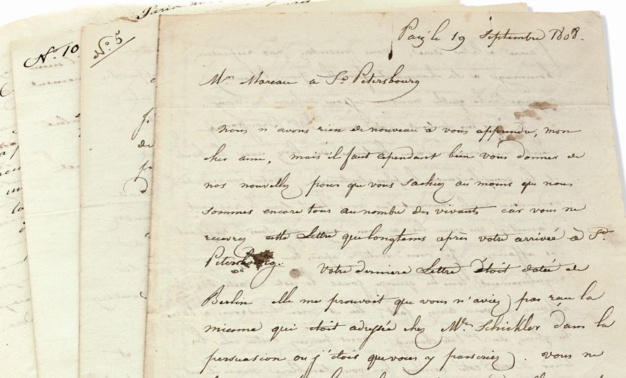 N.º 10
N.º 5
Paris le 19 Septembre 1808.
Mr. Moreau à St. Petersbourg
Nous n'avons rien de nouveau à vous apprendre, mon
cher ami, mais il faut cependant bien vous donner de
nos nouvelles pour que vous sachiez au moins que nous
sommes encore tous au nombre des vivants car vous ne
recevrez cette Lettre que longtems après votre arrivée à St.
Petersbourg. Votre derniere Lettre étoit datée de
Berlin elle me prouvoit que vous n'aviez pas reçu la
mienne qui étoit adressée chez Mrs. Schickler dans la
persuasion où j'étois que vous y passeriez. Vous ne